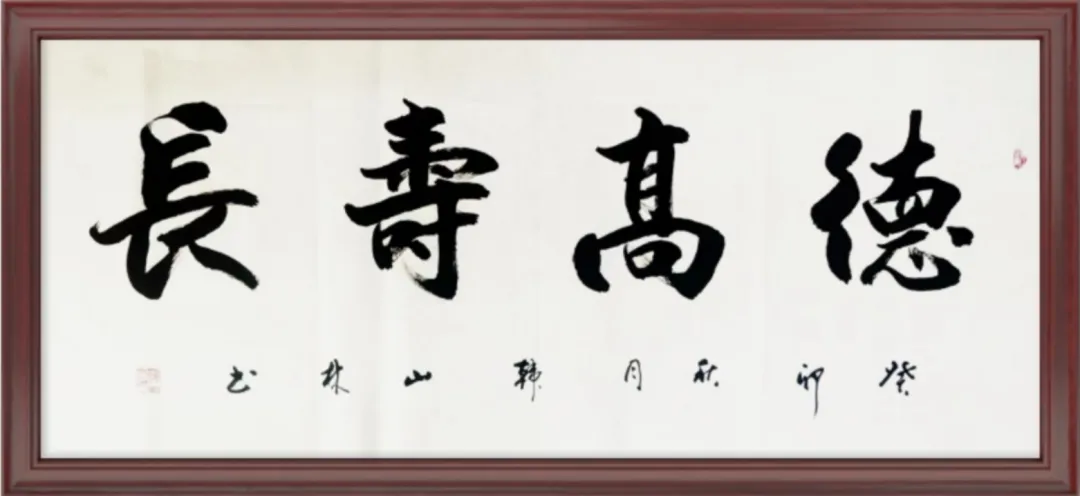 德高壽長
癸卯秋月韩山林书